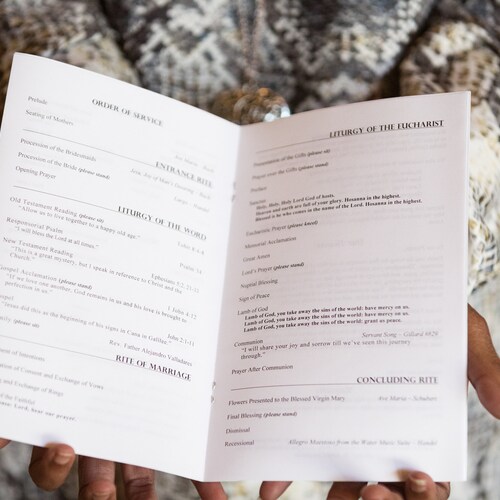 ORDER OF SERVICE
Prelude
Seating of Mothers
ENTRANCE RITE
Procession of the Bridesmaids
Procession of the Bride (please stand)
Opening Prayer
LITURGY OF THE WORD
Old Testament Reading (please sit)
"Allow us to live together to a happy old age."
Responsorial Psalm
"I will bless the Lord at all times."
New Testament Reading
Ephesians 5:2, 21-33
"This is a great mystery, but I speak in reference to Christ and the
Church."
Gospel Acclamation (please stand)
1 John 4:12
"If we love one another, God remains in us and his love is brought to
perfection in us."
John 2:1-11
did this, as the beginning of his signs in Cana in Galilee."
(please sit)
Rev. Father Alejandro Valladares
RITE OF MARRIAGE
of Intentions
of Consent and Exchange of Vows
and Exchange of Rings
of the Faithful
Lord, hear our prayer.
LITURGY OF THE EUCHARIST
Presentation of the Gifts (please sit)
Prayer over the Gifts (please stand)
Preface
Sanctus
Holy, Holy, Holy Lord God of hosts.
Heaven and earth are full of your glory. Hosanna in the highest.
Blessed is he who comes in the name of the Lord. Hosanna in the highest.
Eucharistic Prayer (please kneel)
Memorial Acclamation
Great Amen
Lord's Prayer (please stand)
Nuptial Blessing
Sign of Peace
Lamb of God
Lamb of God, you take away the sins of the world: have mercy on us.
Lamb of God, you take away the sins of the world: have mercy on us.
Lamb of God, you take away the sins of the world: grant us peace.
Communion Servant Song – Gillard #829
"I will share your joy and sorrow till we've seen this journey
through."
Prayer After Communion
CONCLUDING RITE
Flowers Presented to the Blessed Virgin Mary Ave Maria – Schubert
Final Blessing (please stand)
Dismissal
Recessional Allegro Maestoso from the Water Music Suite – Handel